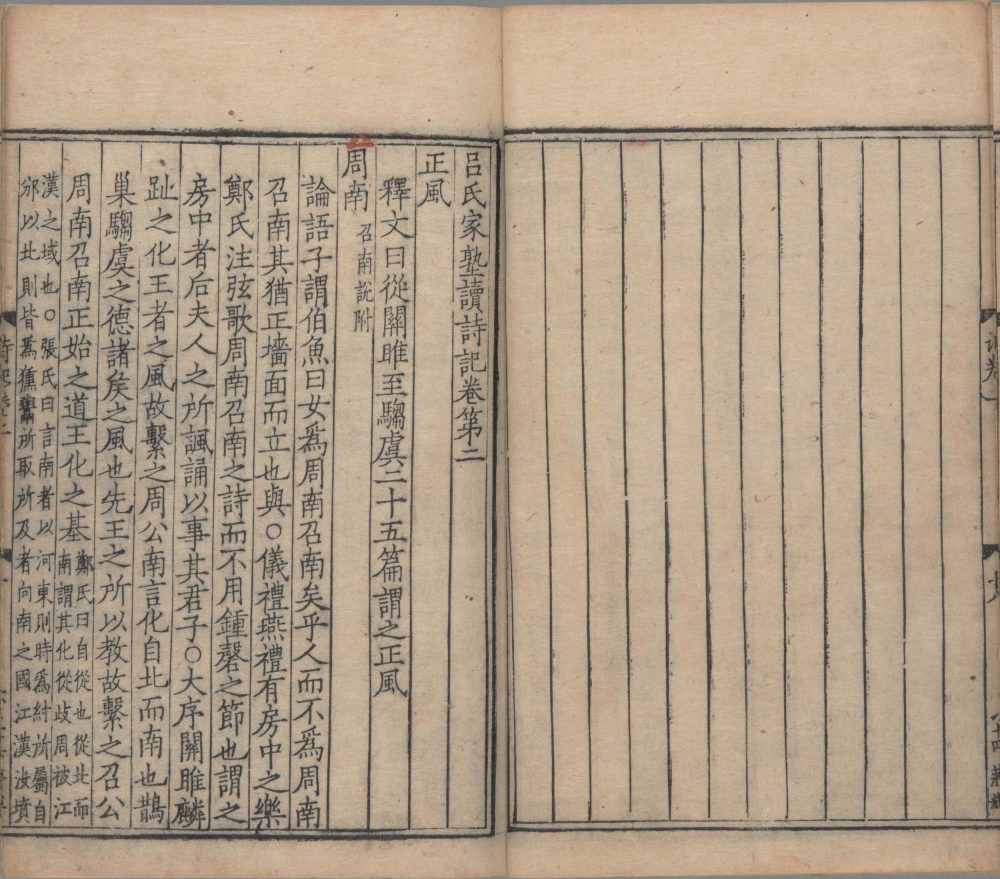 呂氏家塾讀詩記卷第二
正風
釋文曰從關雎至騶虞二十五篇謂之正風
周南 召南說附
論語子謂伯魚曰女爲周南召南矣乎人而不爲周南
召南其猶正墻面而立也與○儀禮燕禮有房中之樂
鄭氏注弦歌周南召南之詩而不用鍾磬之節也謂之
房中者后夫人之所諷誦以事其君子○大序關雎麟
趾之化王者之風故繫之周公南言化自北而南也鵲
巢騶虞之德諸矦之風也先王之所以教故繫之召公
周南召南正始之道王化之基 鄭氏曰自從也從北而
南謂其化從歧周被江
漢之域也○張氏曰言南者以河東則時爲紂所屬自
邠以北則皆爲獯鬻所取所及者向南之國江漢汝墳